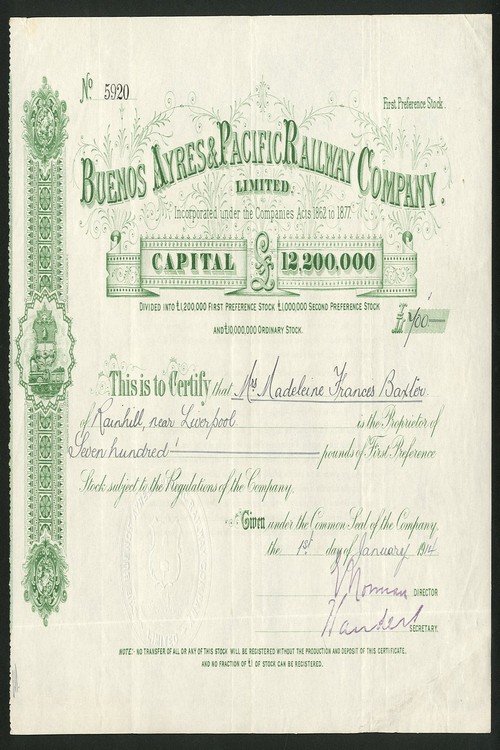 No 5920
First Preference Stock.
BUENOS AYRES & PACIFIC RAILWAY COMPANY.
LIMITED.
Incorporated under the Companies Acts 1862 to 1877
CAPITAL £ 12,200,000
DIVIDED INTO £1,200,000 FIRST PREFERENCE STOCK £1,000,000 SECOND PREFERENCE STOCK
AND £10,000,000 ORDINARY STOCK.
£700—
This is to Certify that Mrs Madeleine Frances Baxter
of Rainhill, near Liverpool is the Proprietor of
Seven hundred pounds of First Preference
Stock subject to the Regulations of the Company.
Given under the Common Seal of the Company,
the 1st day of January 1914
DIRECTOR
SECRETARY.
NOTE: NO TRANSFER OF ALL OR ANY OF THIS STOCK WILL BE REGISTERED WITHOUT THE PRODUCTION AND DEPOSIT OF THIS CERTIFICATE,
AND NO FRACTION OF £1 OF STOCK CAN BE REGISTERED.